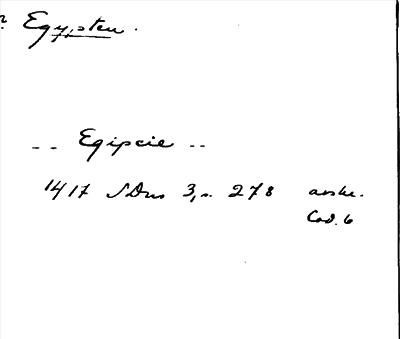 Egypten.
-- Egipcie --
1417 SDns 3, s. 278 avskr.
Cod. 6